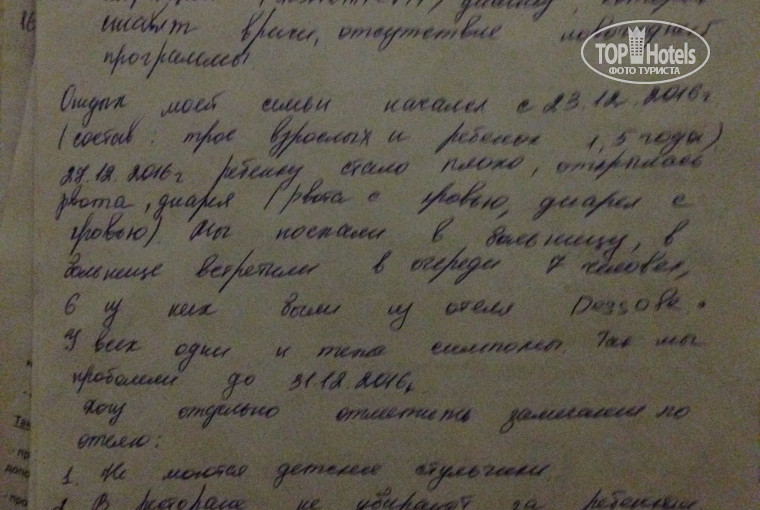 ставят врачи, отсутствие новогодней
программы.
Отдых моей семьи начался с 23.12.2016г
(состав: трое взрослых и ребенок 1,5 года)
27.12.2016г ребенку стало плохо, открылась
рвота, диарея (рвота с кровью, диарея с
кровью) Мы поехали в больницу, в
больнице встретили в очереди 7 человек,
6 из них были из отеля Dessole.
У всех одни и теже симптомы. Так мы
проболели до 31.12.2016г.
Хочу отдельно отметить замечания по
отелю:
1. Не моются детские стульчики
В ресторане не убирают за ребенком
TOP Hotels
ФОТО ТУРИСТА
16